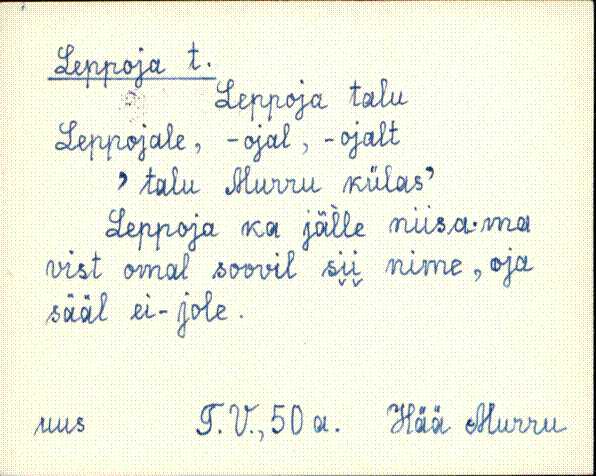 Leppoja t.
Leppoja talu
Leppojale, -ojal, -ojalt
, talu Murru külas,
Leppoja ka jälle niisa·ma
vist omal soovil sii nime, oja
sääl ei-jole.
uus T. V., 50 a. Hää Murru